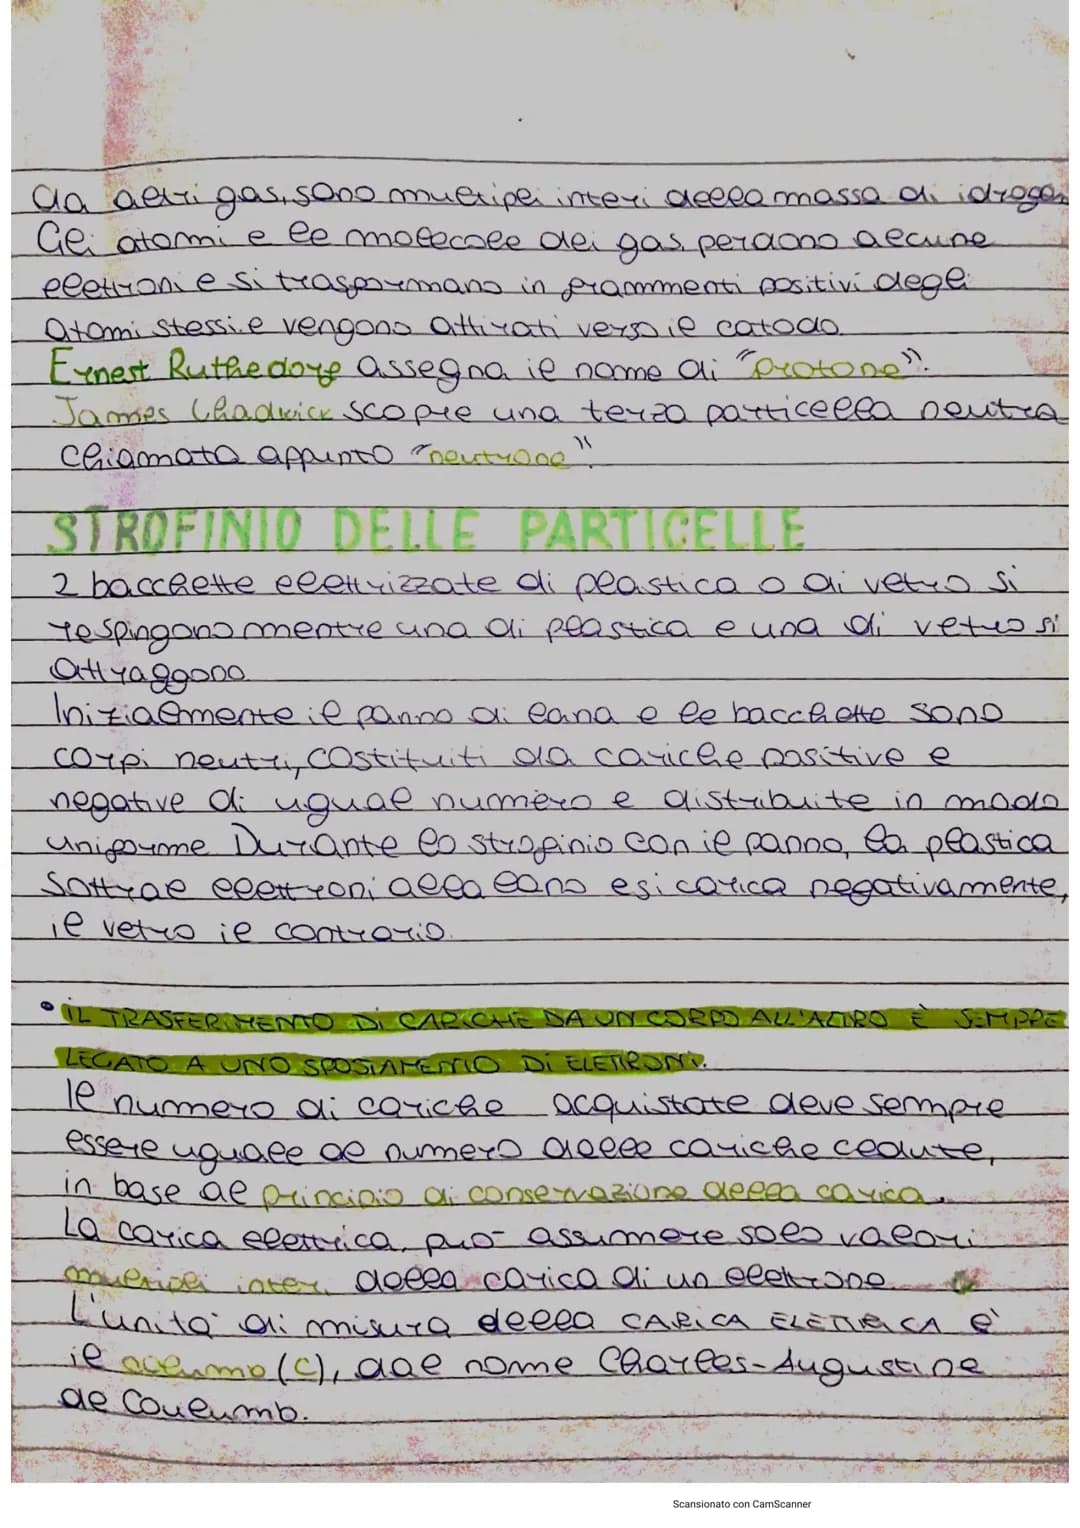 da altri gas, sono multipli interi della massa di idrogen
Gli atomi e le molecole dei gas, perdono alcune
elettroni e si trasformano in frammenti positivi degli
atomi stessi e vengono attirati verso il catodo.
Ernest Ruthedorf assegna il nome di "protone".
James Chadwick scopre una terza particella neutra
chiamata appunto "neutrone".
STROFINIO DELLE PARTICELLE
2 bacchette elettrizzate di plastica o di vetro si
respingono mentre una di plastica e una di vetro si
attraggono
Inizialmente il panno di lana e le bacchette sono
corpi neutri, costituiti da cariche positive e
negative di uguale numero e distribuite in modo
uniforme Durante lo strofinio con il panno, la plastica
sottrae elettroni alla lana e si carica negativamente,
il vetro il contrario.
• IL TRASFERIMENTO DI CARICHE DA UN CORPO ALL'ALTRO È SEMPRE
LEGATO A UNO SPOSTAMENTO DI ELETTRONI.
Il numero di cariche acquistate deve sempre
essere uguale al numero delle cariche cedute,
in base al principio di conservazione della carica.
La carica elettrica, può assumere solo valori
multipli interi della carica di un elettrone.
L'unità di misura della CARICA ELETTRICA è
il coulumo (C), dal nome Charles-Augustine
de Couloumb.
Scansionato con CamScanner